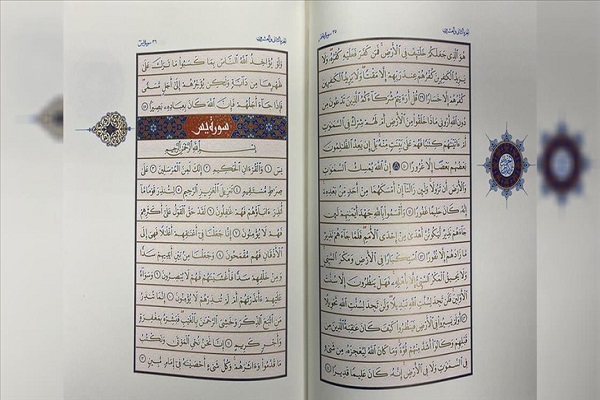 الجزء الثاني والعشرون سورة فاطر ٣٥
هُوَ الَّذِي جَعَلَكُمْ خَلَٰٓئِفَ فِي الْأَرْضِ فَمَن كَفَرَ فَعَلَيْهِ كُفْرُهُ وَلَا
يَزِيدُ الْكَٰفِرِينَ كُفْرُهُمْ عِندَ رَبِّهِمْ إِلَّا مَقْتًا وَلَا يَزِيدُ الْكَٰفِرِينَ
كُفْرُهُمْ إِلَّا خَسَارًا ٣٩ قُلْ أَرَءَيْتُمْ شُرَكَآءَكُمُ الَّذِينَ تَدْعُونَ مِن
دُونِ اللَّهِ أَرُونِي مَاذَا خَلَقُوا مِنَ الْأَرْضِ أَمْ لَهُمْ شِرْكٌ فِي السَّمَٰوَٰتِ
أَمْ ءَاتَيْنَٰهُمْ كِتَٰبًا فَهُمْ عَلَىٰ بَيِّنَتٍ مِّنْهُ بَلْ إِن يَعِدُ الظَّٰلِمُونَ
بَعْضُهُم بَعْضًا إِلَّا غُرُورًا ٤٠ إِنَّ اللَّهَ يُمْسِكُ السَّمَٰوَٰتِ
وَالْأَرْضَ أَن تَزُولَا وَلَئِن زَالَتَآ إِنْ أَمْسَكَهُمَا مِنْ أَحَدٍ مِّنۢ بَعْدِهِ
إِنَّهُ كَانَ حَلِيمًا غَفُورًا ٤١ وَأَقْسَمُوا بِاللَّهِ جَهْدَ أَيْمَٰنِهِمْ لَئِن
جَآءَهُمْ نَذِيرٌ لَّيَكُونُنَّ أَهْدَىٰ مِنْ إِحْدَى الْأُمَمِ فَلَمَّا جَآءَهُمْ نَذِيرٌ
مَّا زَادَهُمْ إِلَّا نُفُورًا ٤٢ اسْتِكْبَارًا فِي الْأَرْضِ وَمَكْرَ السَّيِّئِ
وَلَا يَحِيقُ الْمَكْرُ السَّيِّئُ إِلَّا بِأَهْلِهِ فَهَلْ يَنظُرُونَ إِلَّا سُنَّتَ
الْأَوَّلِينَ فَلَن تَجِدَ لِسُنَّتِ اللَّهِ تَبْدِيلًا وَلَن تَجِدَ لِسُنَّتِ اللَّهِ تَحْوِيلًا
٤٣ أَوَلَمْ يَسِيرُوا فِي الْأَرْضِ فَيَنظُرُوا كَيْفَ كَانَ عَٰقِبَةُ الَّذِينَ مِن
قَبْلِهِمْ وَكَانُوٓا أَشَدَّ مِنْهُمْ قُوَّةً وَمَا كَانَ اللَّهُ لِيُعْجِزَهُ مِن شَيْءٍ
فِي السَّمَٰوَٰتِ وَلَا فِي الْأَرْضِ إِنَّهُ كَانَ عَلِيمًا قَدِيرًا ٤٤
الجزء الثاني والعشرون سورة يس ٣٦
وَلَوْ يُؤَاخِذُ اللَّهُ النَّاسَ بِمَا كَسَبُوا مَا تَرَكَ عَلَىٰ
ظَهْرِهَا مِن دَآبَّةٍ وَلَٰكِن يُؤَخِّرُهُمْ إِلَىٰٓ أَجَلٍ مُّسَمًّى
فَإِذَا جَآءَ أَجَلُهُمْ فَإِنَّ اللَّهَ كَانَ بِعِبَادِهِ بَصِيرًا ٤٥
سورة يس
بِسْمِ اللَّهِ الرَّحْمَٰنِ الرَّحِيمِ
يسٓ ١ وَالْقُرْءَانِ الْحَكِيمِ ٢ إِنَّكَ لَمِنَ الْمُرْسَلِينَ ٣ عَلَىٰ
صِرَٰطٍ مُّسْتَقِيمٍ ٤ تَنزِيلَ الْعَزِيزِ الرَّحِيمِ ٥ لِتُنذِرَ قَوْمًا مَّآ
أُنذِرَ ءَابَآؤُهُمْ فَهُمْ غَٰفِلُونَ ٦ لَقَدْ حَقَّ الْقَوْلُ عَلَىٰٓ أَكْثَرِهِمْ
فَهُمْ لَا يُؤْمِنُونَ ٧ إِنَّا جَعَلْنَا فِيٓ أَعْنَٰقِهِمْ أَغْلَٰلًا فَهِيَ إِلَى
الْأَذْقَانِ فَهُم مُّقْمَحُونَ ٨ وَجَعَلْنَا مِنۢ بَيْنِ أَيْدِيهِمْ سَدًّا
وَمِنْ خَلْفِهِمْ سَدًّا فَأَغْشَيْنَٰهُمْ فَهُمْ لَا يُبْصِرُونَ ٩ وَسَوَآءٌ
عَلَيْهِمْ ءَأَنذَرْتَهُمْ أَمْ لَمْ تُنذِرْهُمْ لَا يُؤْمِنُونَ ١٠ إِنَّمَا تُنذِرُ
مَنِ اتَّبَعَ الذِّكْرَ وَخَشِيَ الرَّحْمَٰنَ بِالْغَيْبِ فَبَشِّرْهُ بِمَغْفِرَةٍ
وَأَجْرٍ كَرِيمٍ ١١ إِنَّا نَحْنُ نُحْيِ الْمَوْتَىٰ وَنَكْتُبُ
مَا قَدَّمُوا وَءَاثَٰرَهُمْ وَكُلَّ شَيْءٍ أَحْصَيْنَٰهُ فِيٓ إِمَامٍ مُّبِينٍ ١٢